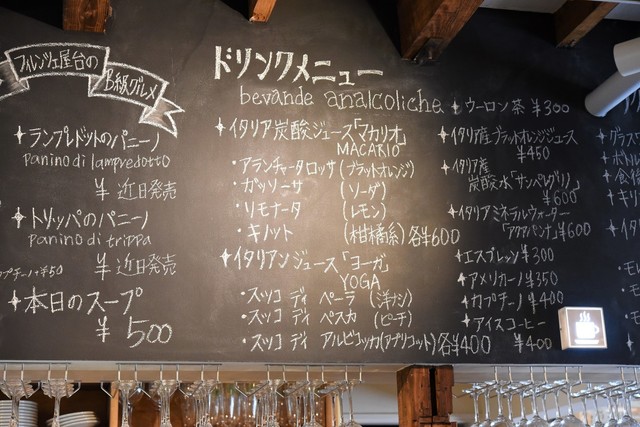 フィレンツェ屋台の
B級グルメ
✦ランプレドットのパニーノ
panino di lampredotto
¥ 近日発売
✦トリッパのパニーノ
panino di trippa
¥ 近日発売
プチーノ+¥50
✦本日のスープ
¥500
ドリンクメニュー
bevande analcoliche
✦イタリア炭酸ジュース「マカリオ」
MACARIO
・アランチャータロッサ(ブラッドオレンジ)
・ガッソーサ (ソーダ)
・リモナータ (レモン)
・キノット (柑橘系)各¥600
✦イタリアンジュース「ヨーガ」
YOGA
・スッコ ディ ペーラ (洋ナシ)
・スッコ ディ ペスカ (ピーチ)
・スッコ ディ アルビコッカ(アプリコット)各¥400
✦ウーロン茶 ¥300
✦イタリア産ブラッドオレンジジュース
¥450
✦イタリア産
炭酸水「サンペレグリノ」
¥600
✦イタリアミネラルウォーター
「アクアパンナ」¥600
✦エスプレッソ ¥300
✦アメリカーノ ¥350
✦カプチーノ ¥400
✦アイスコーヒー
¥400
✦グラス
ボトル
✦食後
✦キリ